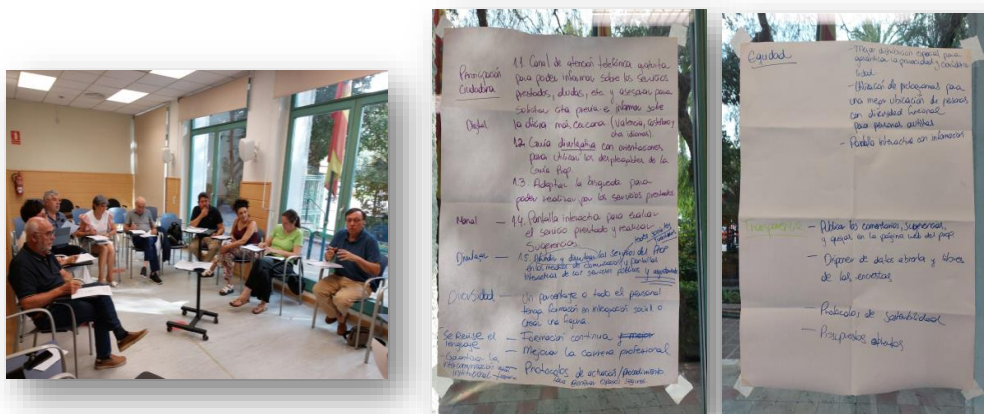 Participación
Ciudadana
1.1 Canal de atención telefónica gratuita
para poder informar sobre los servicios
prestados, dudas, etc y asesorar para
solicitar cita previa e informar sobre
la oficina más cercana (Valenciano, castellano y
otros idiomas)
Digital
1.2. Guía divulgativa con orientaciones
para utilizar los desplegables de la
Guía Prop.
1.3. Adaptar la búsqueda para
poder realizar por los servicios prestados
1.4. Pantalla interactiva para evaluar
el servicio prestado y realizar
Sugerencias
1.5. y divulgar los servicios del PROP
en los medios de comunicación y pantallas
interactivas de los servicios públicos y
Diversidad — Un porcentaje o todo el personal
tenga formación en integración social o
crear una figura.
Se revise el
lenguaje
— Formación continua
— Mejorar la carrera profesional
- Garantizar la
— Protocolos de actuación/procedimiento
para espacios seguros.
Equidad
- Mejor distribución espacial para
garantizar la privacidad y
- Utilización de pictogramas para
una mejor ubicación de personas
con diversidad funcional
para personas autistas
- Pantalla Interactiva con información
Transparencia — Publicar los comentarios, sugerencias,
y quejas en la página web del prop
— Disponer de datos abiertos y
de las encuestas
— Protocolos de sostenibilidad
— Presupuestos abiertos